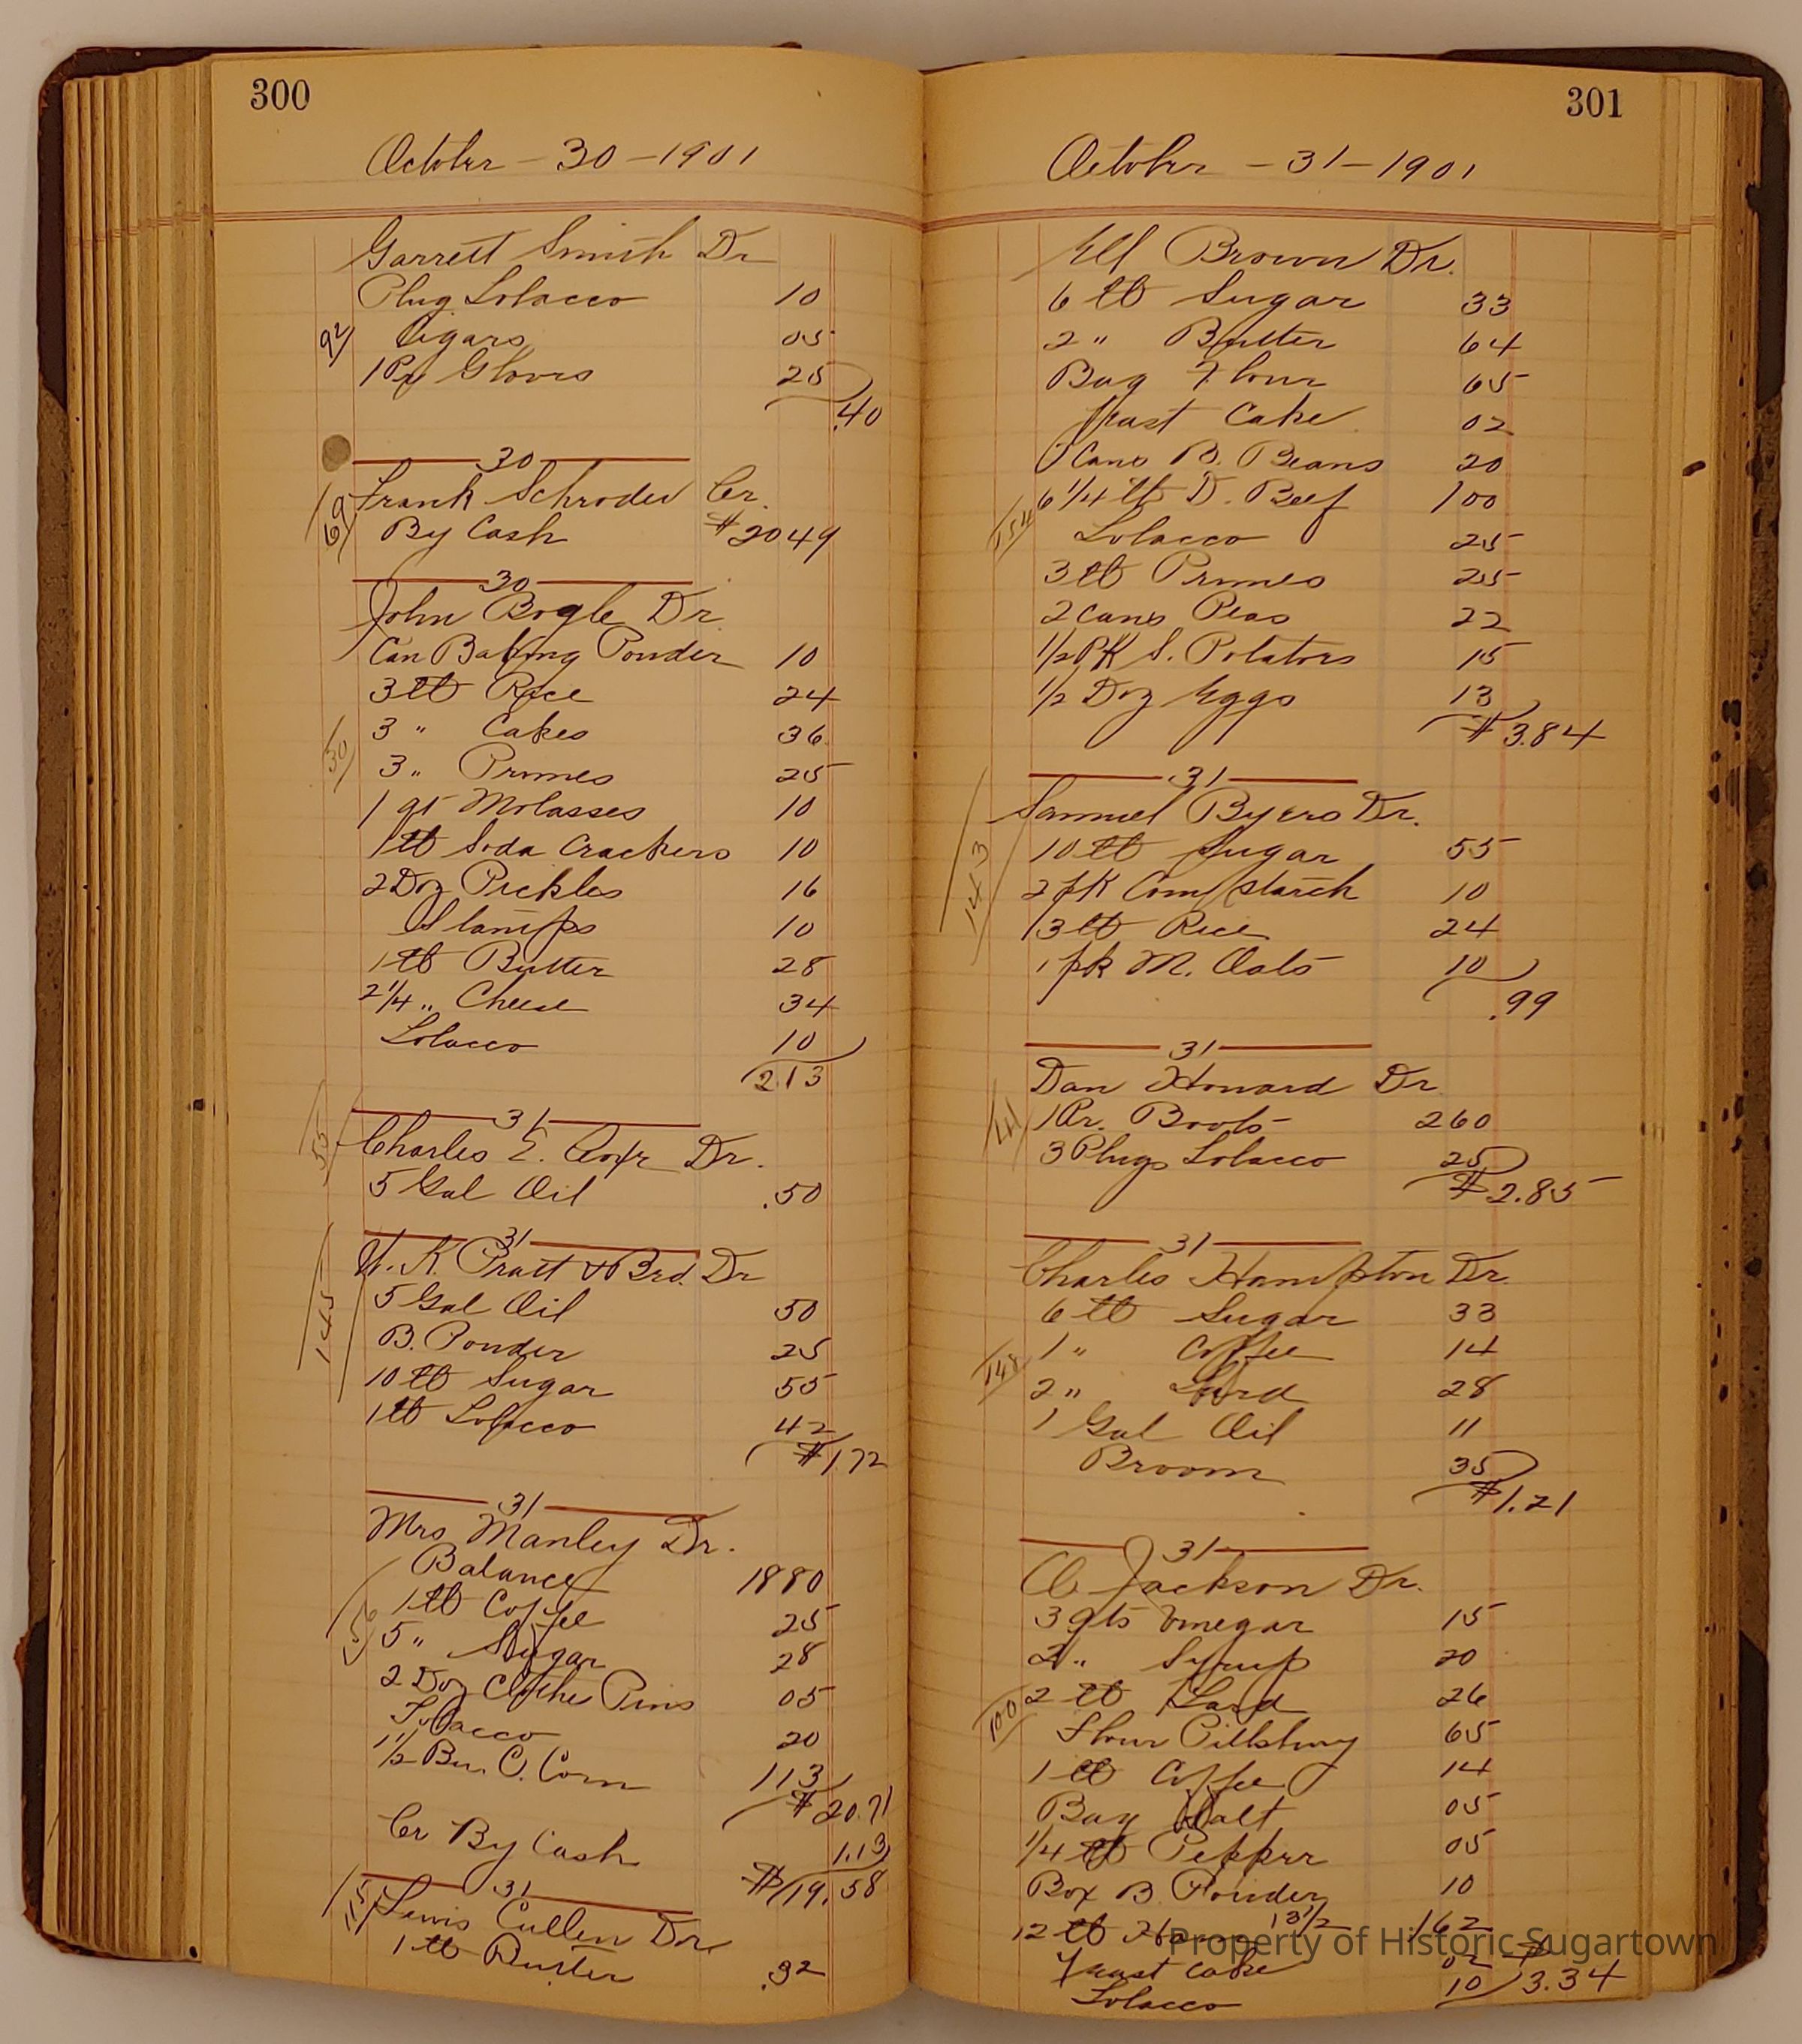 300
October - 30 - 1901
Garrett Smith Dr
Plug Tobacco 10
92 Cigars 05
1 Pr Gloves 25
.40
30
69 Frank Schroder Cr.
By Cash $2049
30
John Bogle Dr.
Can Baking Powder 10
3 lb Rice 24
30 3 " Cakes 36
3 " Prunes 25
1 qt Molasses 10
1 lb Soda Crackers 10
2 Doz Pickles 16
Stamps 10
1 lb Butter 28
2 1/4 " Cheese 34
Tobacco 10
2.13
31
Charles E. Dr.
5 Gal Oil .50
31
W. K. Pratt & Bro. Dr
5 Gal Oil 50
145 B. Powder 25
10 lb Sugar 55
1 lb Tobacco 42
$1.72
31
Mrs Manley Dr.
Balance 1880
1 lb Coffee 25
5 " Sugar 28
2 Doz Clothe Pins 05
Tobacco 20
1 1/2 Bu. C. Corn 113
$20.71
Cr By Cash 1.13
$19.58
31
Lewis Cullen Dr.
1 lb Butter .32
301
October - 31 - 1901
Brown Dr.
6 lb Sugar 33
2 " Butter 64
Bag Flour 65
Yeast Cake 02
Cans B. Beans 20
154 6 1/4 lb D. Beef 100
Tobacco 25
3 lb Prunes 25
2 cans Peas 22
1/2 PK S. Potatoes 15
1/2 Doz Eggs 13
$3.84
31
Samuel Byers Dr.
143 10 lb Sugar 55
2 pk Corn Starch 10
3 lb Rice 24
1 pk M. Oats 10
.99
31
Dan Howard Dr
41 1 Pr. Boots 260
3 Plugs Tobacco 25
$2.85
31
Charles Hampton Dr
6 lb Sugar 33
148 1 " Coffee 14
2 " Lard 28
1 Gal Oil 11
Broom 35
$1.21
31
Jackson Dr.
3 qts Vinegar 15
2 " Syrup 20
100 2 lb Lard 26
Flour Pillsbury 65
1 lb Coffee 14
Bag Salt 05
1/4 lb Pepper 05
Box B. Powder 10
12 lb Ham 13 1/2 162
Yeast Cake 02 $
Tobacco 10 3.34
Property of Historic Sugartown